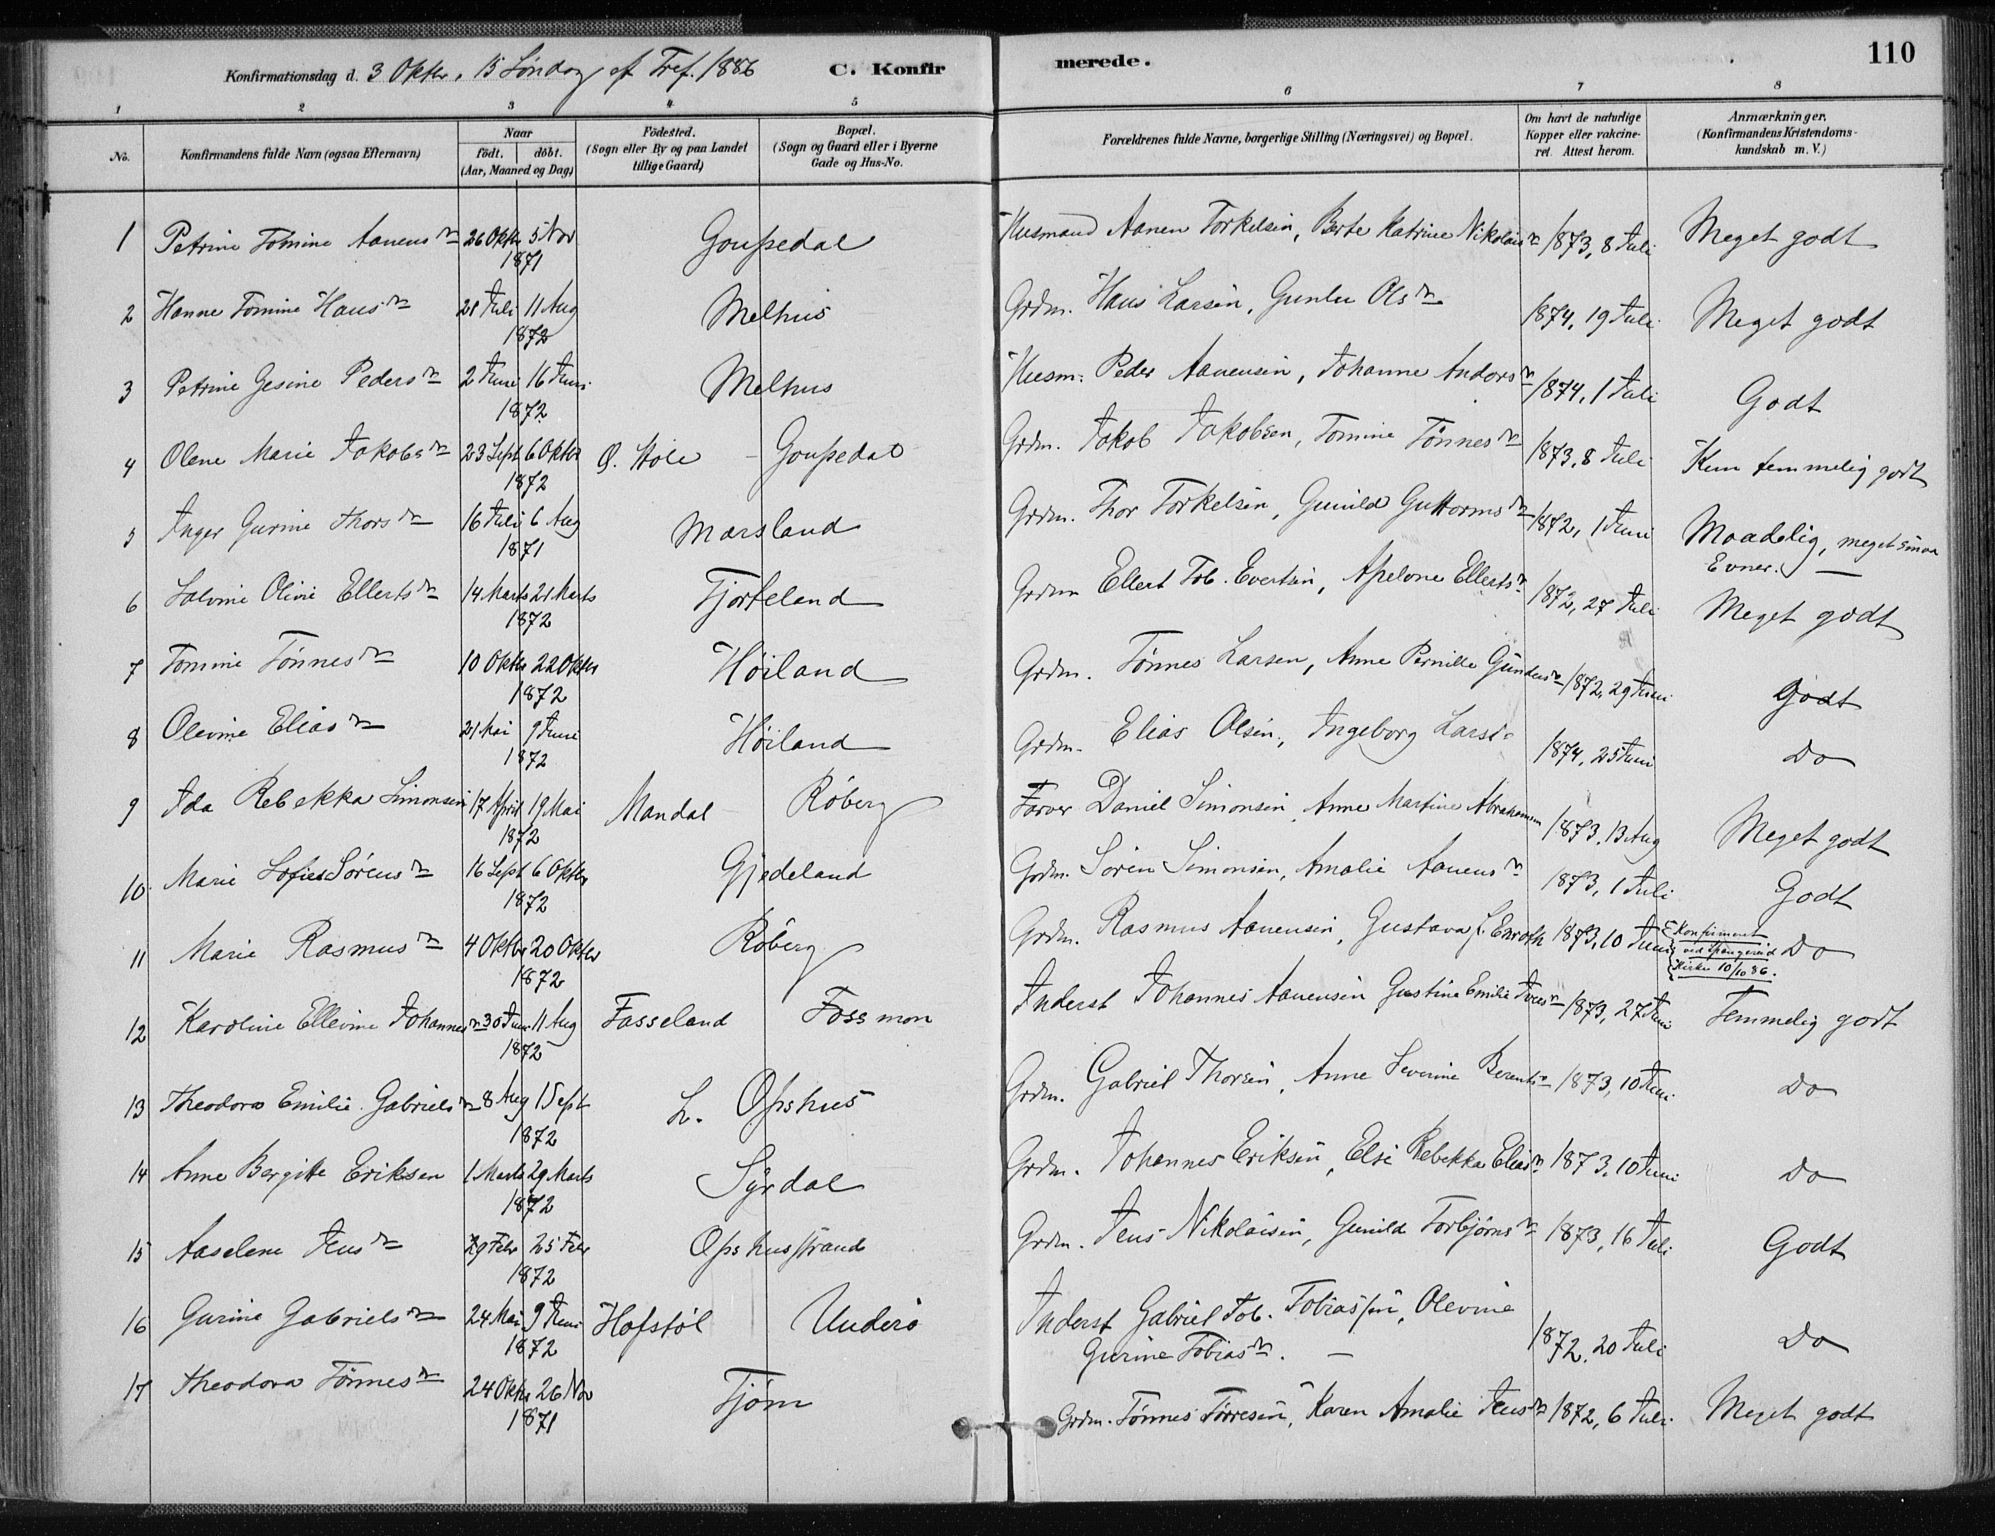 Konfirmationsdag d. 3 Oktbr. 15 Søndag ef Tref. 1886 C. Konfirmerede. 110
1 2 3 4 5 6 7 8
No. Konfirmandens fulde Navn (ogsaa Efternavn) Naar født. døbt. (Aar, Maaned og Dag) Fødested. (Sogn eller By og paa Landet tillige Gaard) Bopæl. (Sogn og Gaard eller i Byerne Gade og Hus-No. Forældrenes fulde Navne, borgerlige Stilling (Næringsvei) og Bopæl. Om havt de naturlige Kopper eller vakcineret. Attest herom. Anmærkninger. (Konfirmandens Kristendomskundskab m. V.)
1 Petrine Tomine Aanensdr 26 Oktbr 5 Nov 1871 Goussedal Husmand Aanen Torkelsen, Berte Katrine Nikolaisdr 1873, 8 Juli Meget godt
2 Hanne Tomine Hansdr 21 Juli 11 Aug 1872 Melhus Grdm. Hans Larsen, Olsdr 1874, 19 Juli Meget godt
3 Petrine Gesine Pedersdr 2 Juni 16 Juni 1872 Melhus Husm. Peder Aanensen, Johanne Andorsdr 1874, 1 Juli Godt
4 Olene Marie Jakobsdr 23 Sept 6 Oktbr 1872 Ø. Hole - Goussedal Grdm. Jakob Jakobsen, Tomine Tønnesdr 1873, 8 Juli Kun temmelig godt
5 Inger Gurine Thorsdr 16 Juli 6 Aug 1871 Marsland Grdm. Thor Torkelsen, Gunild Guttormsdr 1872, 1 Juni Maadelig, meget smaa Evner. —
6 Salvine Olivie Ellertsdr 14 Marts 21 Marts 1872 Tjorteland Grdm Ellert Tob. Evertsen, Apelone Ellertsdr 1872, 27 Juli Meget godt
7 Tomine Tønnesdr 10 Oktbr 22 Oktbr 1872 Høiland Grdm. Tønnes Larsen, Anne Pernille Gundersdr 1872, 29 Juni Godt
8 Olevine Eliasdr 21 Mai 9 Juni 1872 Høiland Grdm. Elias Olsen, Ingeborg Larsdr 1874, 25 Juni Do
9 Ida Rebekka Simonsen 17 April 19 Mai 1872 Mandal Røberg Farver Daniel Simonsen, Anne Martine Abrahamsen 1873, 13 Aug Meget godt
10. Marie Sofie Sørensdr 16 Sept 6 Oktbr 1872 Gjedeland Grdm. Søren Simonsen, Amalie Aanensdr 1873, 1 Juli Godt
11 Marie Rasmusdr 4 Oktbr 20 Oktbr 1872 Røberg Grdm. Rasmus Aanensen, Gustava f. Enroth 1873, 10 Juni Konfirmeret ved Spangereid Kirke 10/10 86. Do
12 Karoline Ellevine Johannesdr 30 Juni 11 Aug 1872 Fasseland Fossmon Inderst Johannes Aanensen Gustine Emilie 1873, 27 Juni Temmelig godt
13 Theodora Emilie Gabrielsdr 8 Aug 1 Sept 1872 L. Opshus Grdm. Gabriel Thorsen, Anne Severine Berentsdr 1873, 10 Juni Do
14 Anne Bergitte Eriksen 1 Marts 29 Marts 1872 Syrdal Grdm. Johannes Eriksen, Elsi Rebekka Eliasdr 1873, 10 Juni Do
15 Aaselene Jensdr 29 Febr 25 Febr 1872 Opshusstrand Grdm. Jens Nikolaisen, Gunild Torbjørnsdr 1873, 16 Juli Godt
16 Gurine Gabrielsdr 24 Mai 9 Juni 1872 Hofstøl Underø Inderst Gabriel Tob. Tobiassen, Olevine Gurine Tobiasdr. — 1872, 20 Juli Do
17 Theodora Tønnesdr 24 Oktbr 26 Nov 1871 Tjøm Grdm. Tønnes Tørresen, Karen Amalie Jensdr 1872, 6 Juli Meget godt